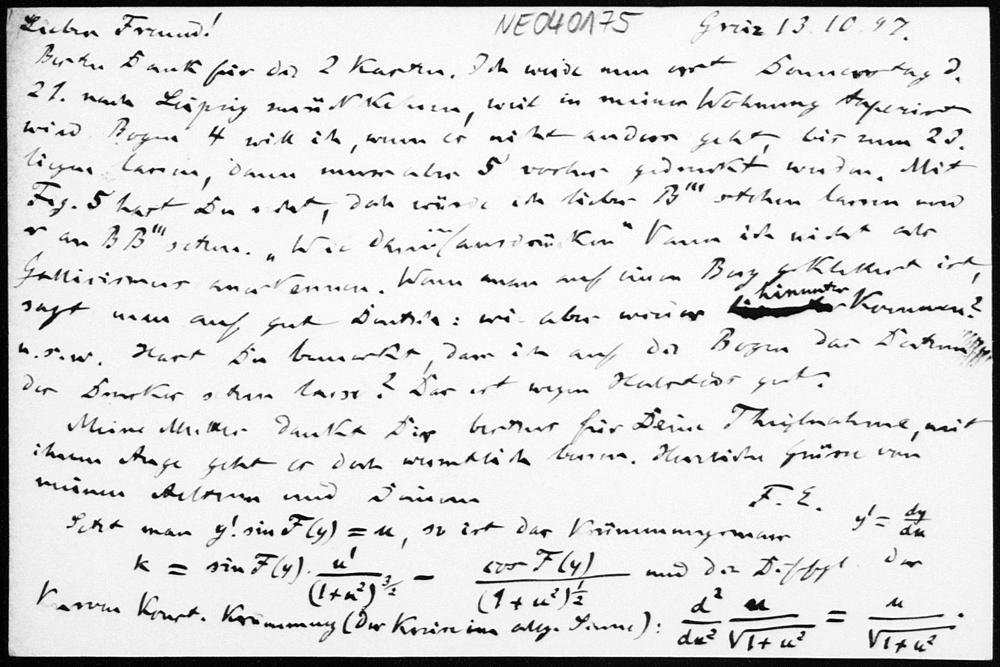 Lieber Freund! NE040175 Greiz 13.10.97.
Besten Dank für die 2 Karten. Ich werde nun erst Donnerstag d.
21. nach Leipzig zurückkehren, weil in meiner Wohnung tapeziert
wird. Bogen 4 will ich, wenn es nicht anders geht, bis zum 23.
liegen lassen, dann muss aber 5 vorher gedruckt werden. Mit
Fig. 5 hast Du recht, doch würde ich lieber B''' stehen lassen und
r an BB''' setzen. „Wie darin ausdrücken" kann ich nicht als
Gallicismus anerkennen. Wenn man auf einen Berg geklettert ist,
sagt man auf gut Deutsch: wie aber wieder hinunter kommen?
u.s.w. Hast Du bemerkt, dass ich auf die Bogen das Datum
des Druckes setzen lasse? Das ist wegen gut.
Meine Mutter dankt Dir bestens für Deine Theilnahme, mit
ihrem Auge geht es doch wesentlich besser. Herzliche Grüsse von
meinen Aeltern und Deinem
F. E.
Setzt man y'. sin F(y) = u, so ist das Krümmungsmaass y' = dy/dx
k = sin F(y). u'/(1+u²)^3/2 − cos F(y)/(1+u²)^1/2 und die Diffgl. der
Kurven konst. Krümmung (der Kreise im allg. Sinne): d²/du² u/√1+u² = u/√1+u².